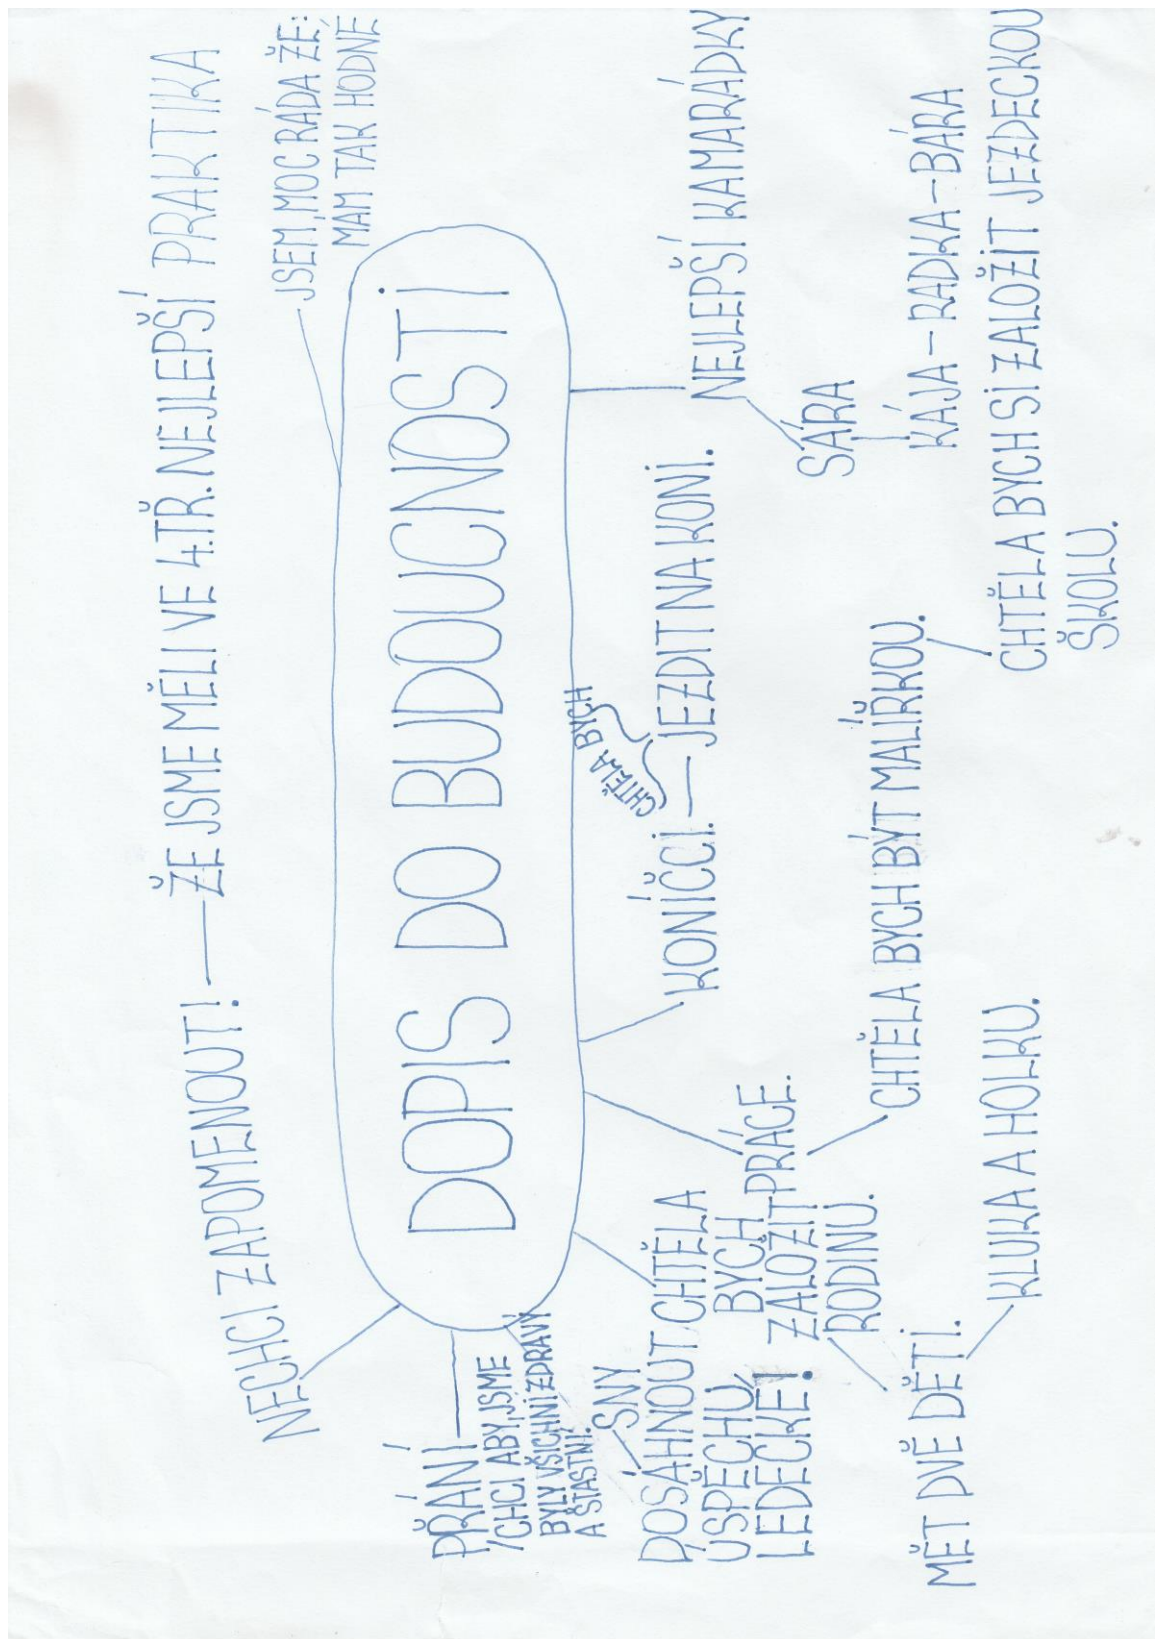 NECHCI ZAPOMENOUT! — ŽE JSME MĚLI VE 4.TŘ. NEJLEPŠÍ PRAKTIKA
JSEM MOC RÁDA ŽE:
MÁM TAK HODNĚ
DOPIS DO BUDOUCNOSTI
PŘÁNÍ
/CHCI ABY JSME
BYLY VŠICHNI ZDRAVÝ
A ŠŤASTNÍ.
SNY
DOSÁHNOUT
ÚSPĚCHU,
LEDECKÉ!
CHTĚLA
BYCH
ZALOŽIT
RODINU.
MĚT DVĚ DĚTI.
KLUKA A HOLKU.
PRÁCE.
CHTĚLA BYCH BÝT MALÍŘKOU.
CHTĚLA BYCH SI ZALOŽIT JEZDECKOU
ŠKOLU.
KONÍČCI. — JEZDIT NA KONI.
CHTĚLA BYCH
NEJLEPŠÍ KAMARÁDKY
SÁRA
KÁJA — RADKA — BÁRA